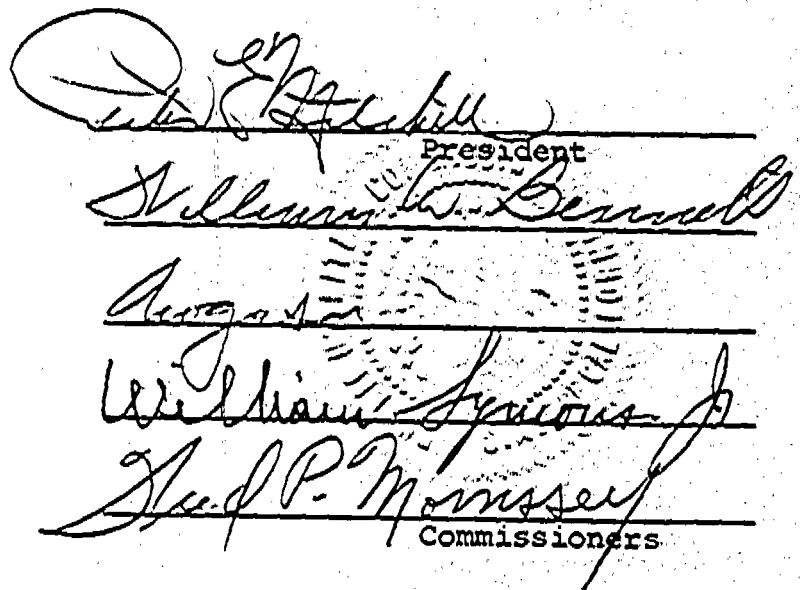 Peter E. Mitchell
President
William M. Bennett
William Symons Jr
Fred P. Morrissey
Commissioners